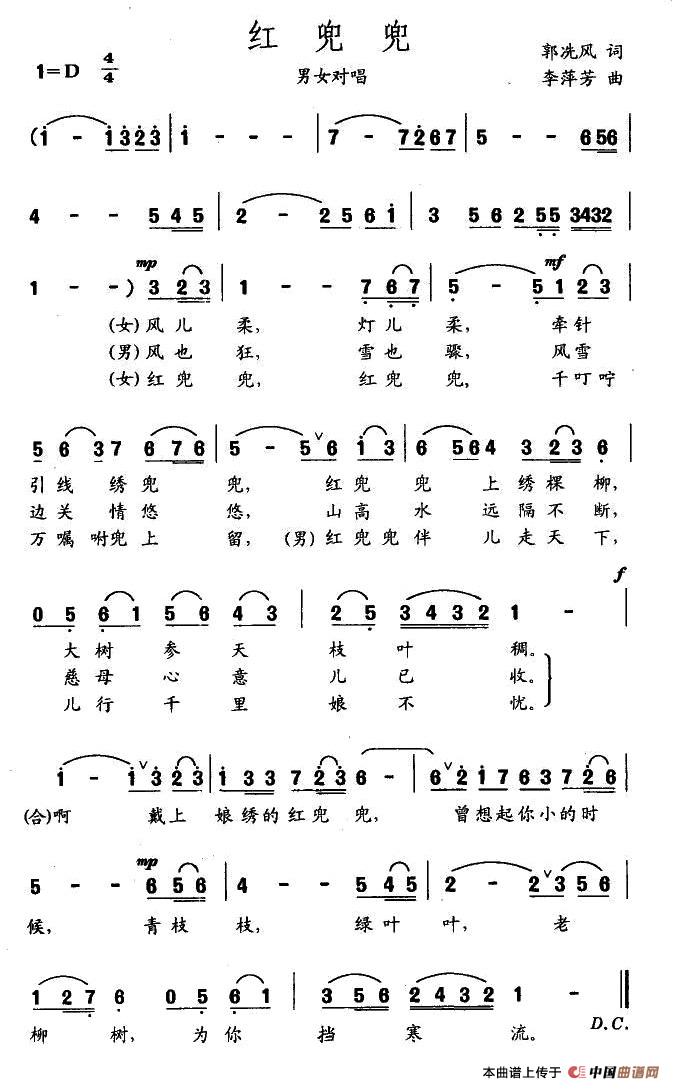 红兜兜
郭冼风 词
1=D 4/4
男女对唱
李萍芳 曲
(i - i323 | i - - - | 7 - 7267 | 5 - - 656 |
4 - - 545 | 2 - 2561 | 3 56 255 3432 |
mp mf
1 - -) 323 | 1 - - 767 | 5 - 51 23 |
(女)风儿柔, 灯儿柔, 牵针
(男)风也狂, 雪也骤, 风雪
(女)红兜兜, 红兜兜, 千叮咛
5 6 37 676 | 5 - 56 13 | 6 564 323 6 |
引线绣兜兜, 红兜兜上绣棵柳,
边关情悠悠, 山高水远隔不断,
万嘱咐兜上留, (男)红兜兜伴儿走天下,
f
05 61 56 43 | 25 3432 1 - |
大树参天枝叶稠。
慈母心意儿已收。
儿行千里娘不忧。
1 - 13 23 | 133 723 6 - | 62 1763 726 |
(合)啊 戴上娘绣的红兜兜, 曾想起你小的时
mp
5 - - 656 | 4 - - 545 | 2 - 23 56 |
候, 青枝枝, 绿叶叶, 老
127 6 05 61 | 356 2432 1 - ‖
柳树, 为你挡寒流。
D.C.
本曲谱上传于 中国曲谱网